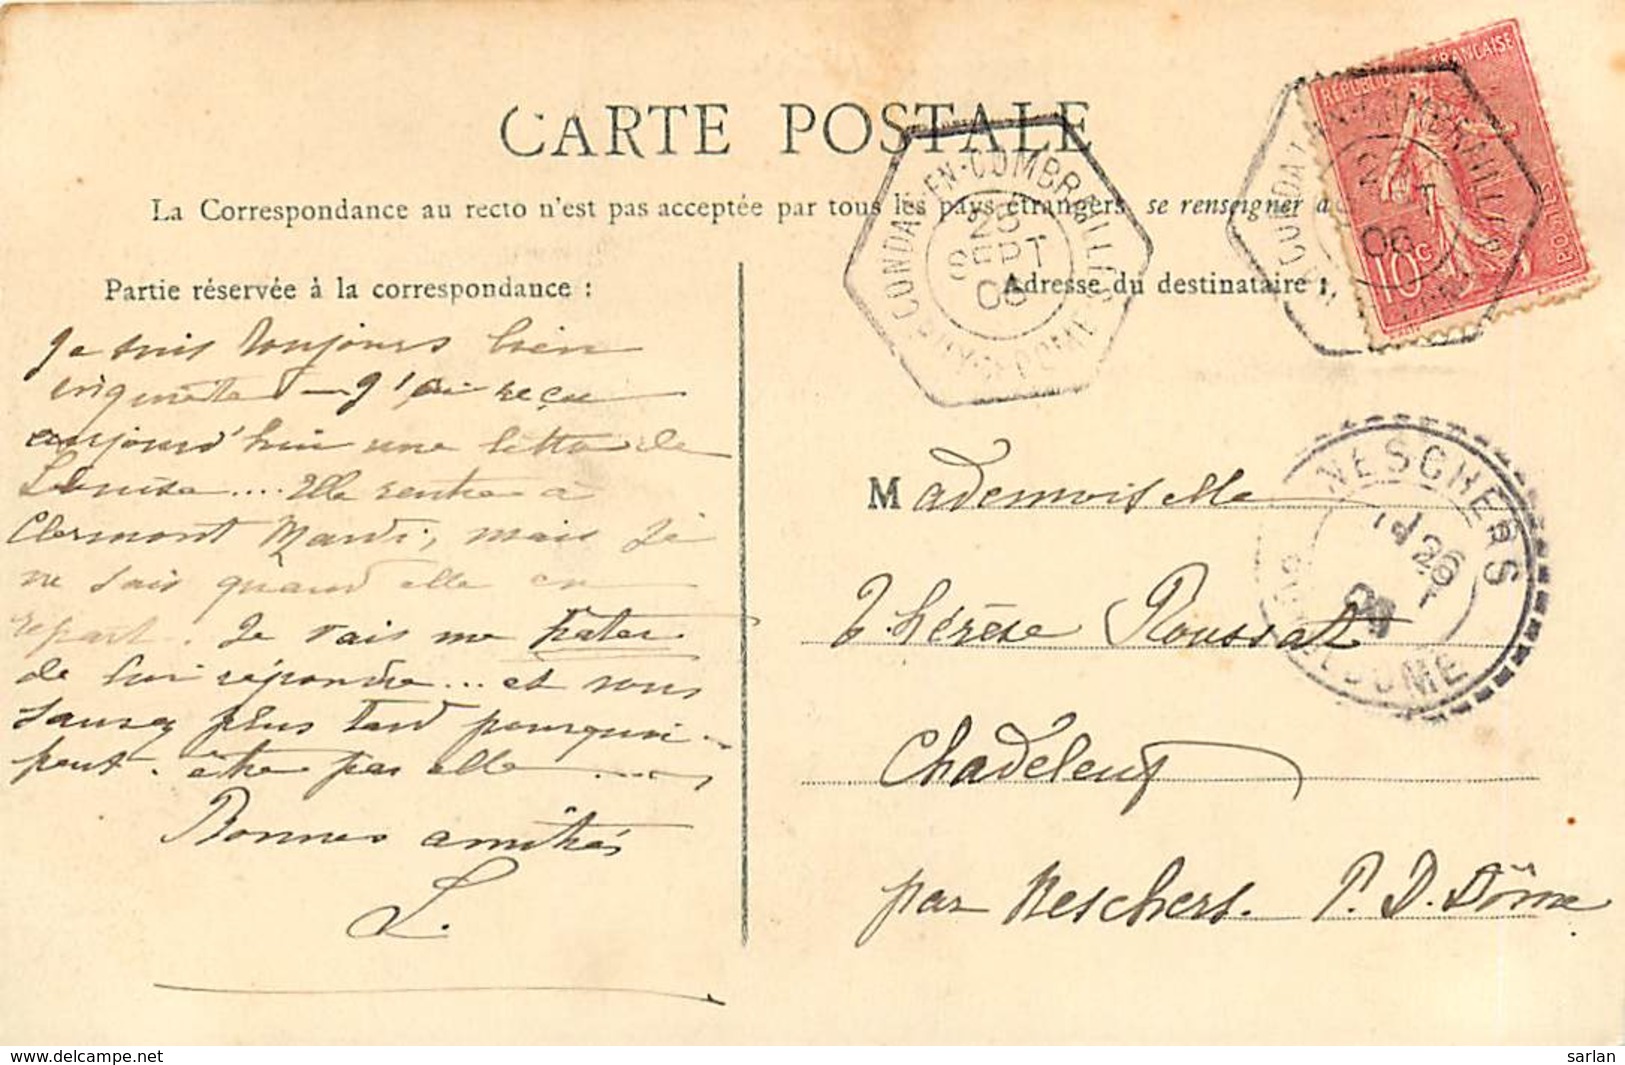 CARTE POSTALE
La Correspondance au recto n'est pas acceptée par tous les pays étrangers se renseigner à
Partie réservée à la correspondance :
Adresse du destinataire :
Je suis toujours bien
inquiète — J'ai reçu
aujourd'hui une lettre de
Louise.... Elle rentre à
Clermont Mardi, mais je
ne sais quand elle en
repart. Je vais me hâter
de lui répondre... et vous
saurez plus tard pourquoi
peut-être par elle .....
Bonnes amitiés
L.
Mademoiselle
Thérèse Roussat
Chadeleuf
par Neschers. P. D. Dôme
CONDAT-EN-COMBRAILLES
PUY-DE-DOME
25
SEPT
06
RÉPUBLIQUE FRANÇAISE
10c
POSTES
CONDAT-EN-COMBRAILLES
06
NESCHERS
26
DOME
www.delcampe.net
Sarlan